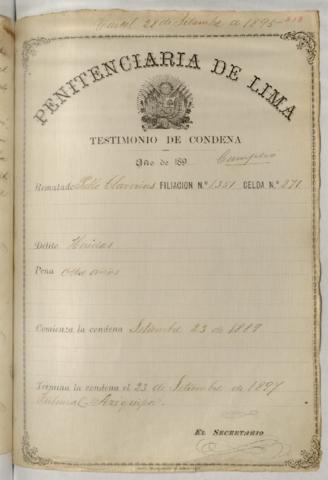 28 de Setiembre de 1895
PENITENCIARIA DE LIMA
TESTIMONIO DE CONDENA
Año de 189
Cumplió
Rematado FILIACION N.° 1351 CELDA N.° 271
Delito Heridas
Pena Ocho años
Comienza la condena Setiembre 23 de 1889
Termina la condena el 23 de Setiembre de 1897
Tribunal Arequipa.
EL SECRETARIO